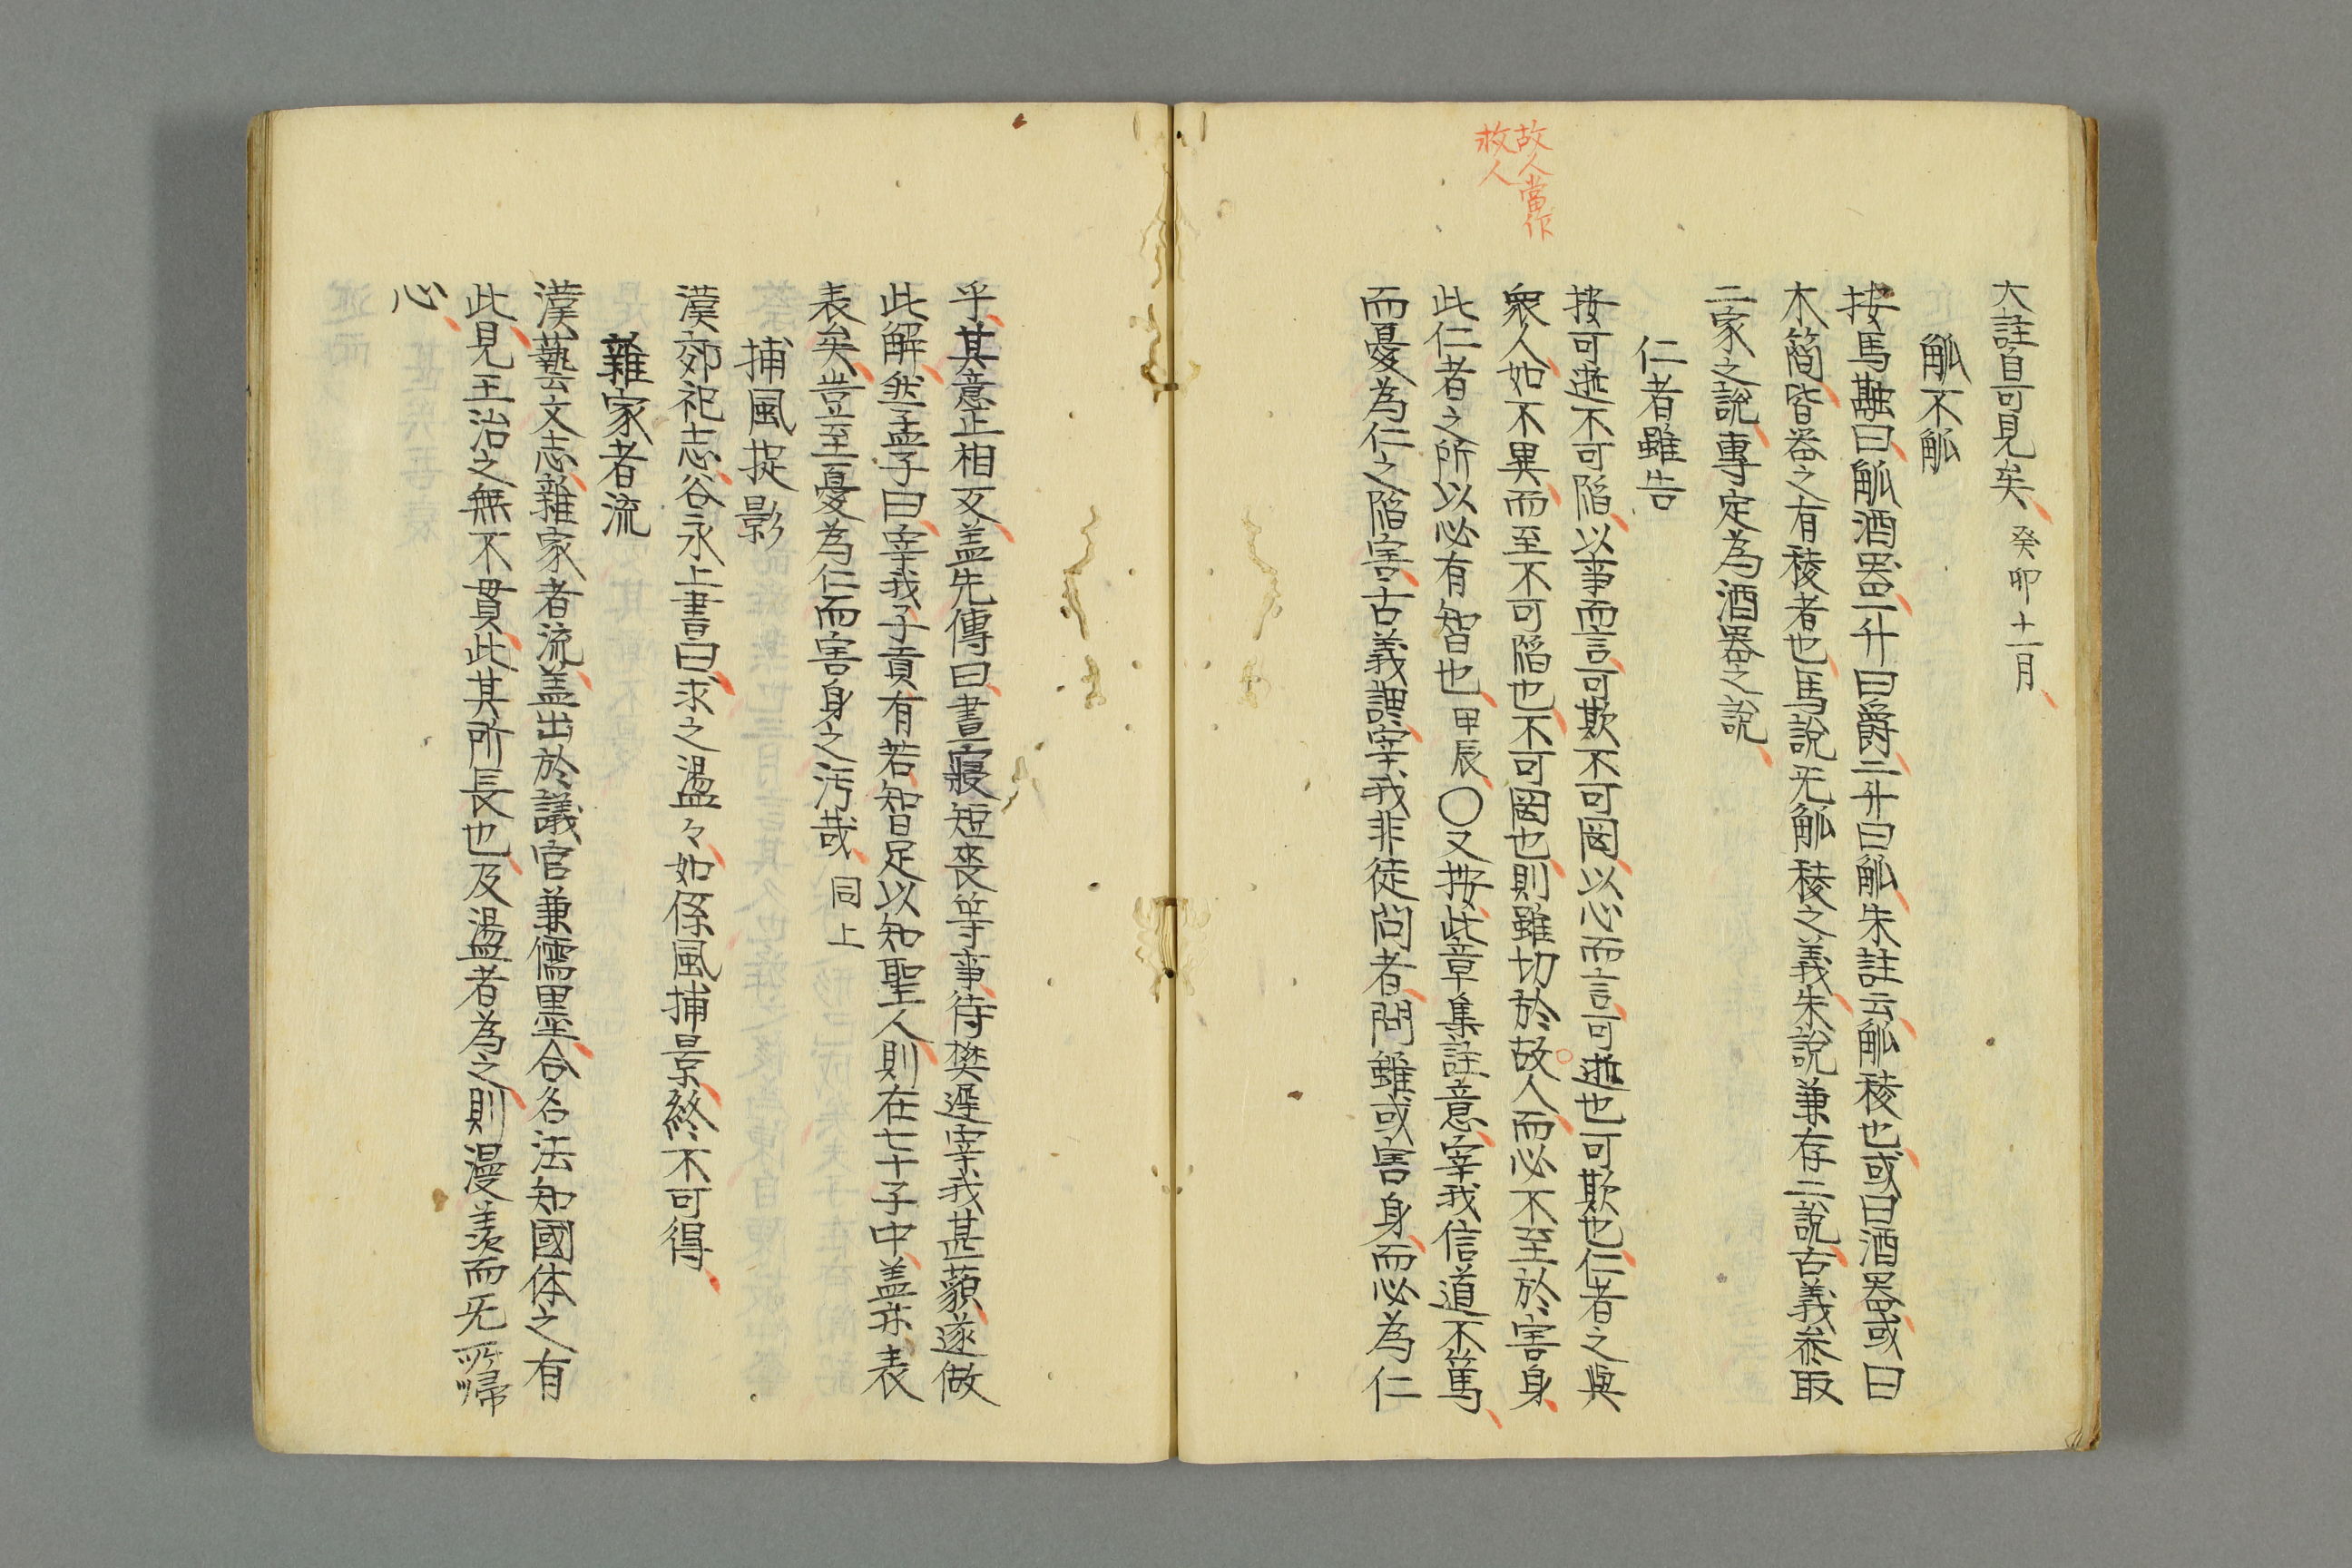 大註自可見矣、癸卯十一月、
觚不觚
按馬融曰、觚酒器、一升曰爵、二升曰觚、朱註云、觚稜也、或曰酒器、或曰
木簡、皆器之有稜者也、馬說无觚稜之義、朱說兼存二說、古義叅取
二家之說、專定為酒器之說、
仁者雖告
按可逝不可陷、以事而言、可欺不可罔、以心而言、可逝也可欺也、仁者之與
衆人、如不異、而至不可陷也、不可罔也、則雖切於故人、而必不至於害身、
此仁者之所以必有智也、甲辰、〇又按、此章集註意、宰我信道不篤、
而憂為仁之陷害、古義謂、宰我非徒問者、問雖或害身、而必為仁
故人當作
救人
乎、其意正相反、盖先傳曰、晝寢短喪等事、待樊遲宰我甚藐、遂做
此解、然孟子曰、宰我子貢有若、智足以知聖人、則在七十子中、盖亦表
表矣、豈至憂為仁而害身之汚哉、同上
捕風捉影
漢郊祀志、谷永上書曰、求之盪々、如係風捕景、終不可得、
雜家者流
漢藝文志、雜家者流、盖出於議官、兼儒墨、合名法、知國体之有
此、見王治之無不貫、此其所長也、及盪者為之、則漫羨而无所歸
心、